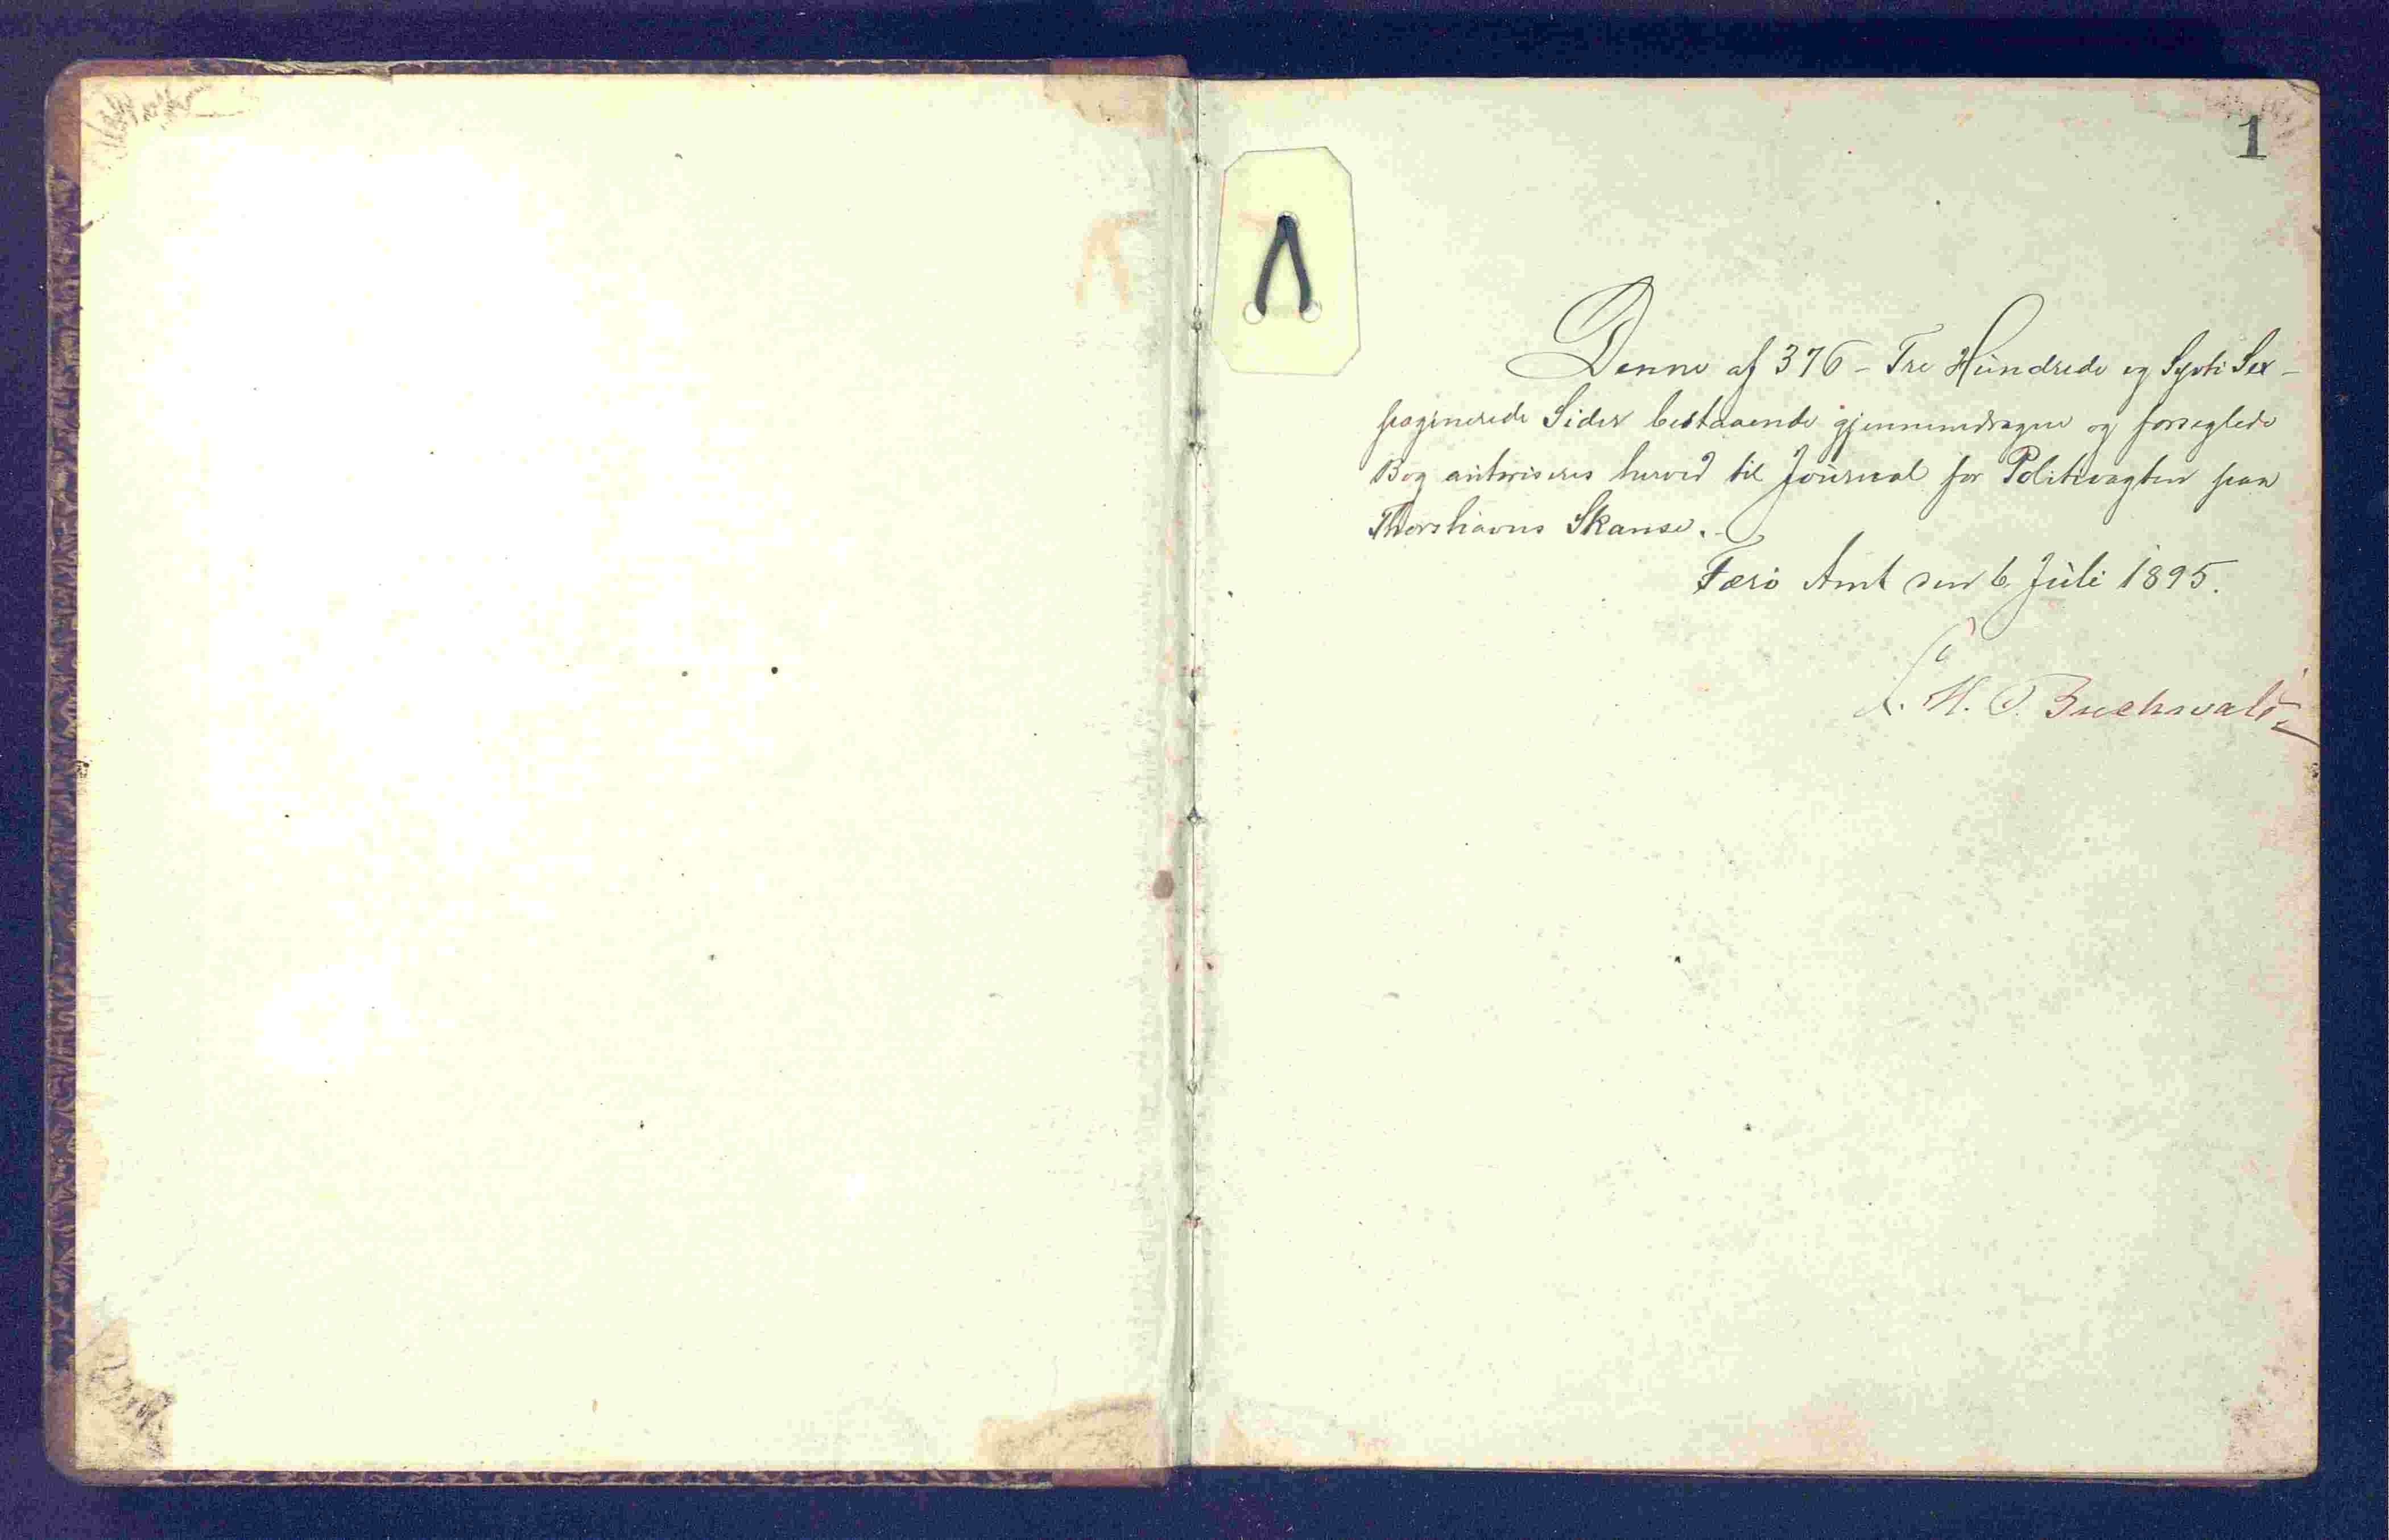 1
Denne af 376 - Tre Hundrede og Syvti Sex -
paginerede Sider bestaaende gjennemdragne og forseglede
Bog autoriseres herved til Journal for Politivagten paa
Thorshavns Skanse.
Færø Amt den 6 Juli 1895.
Buchwald